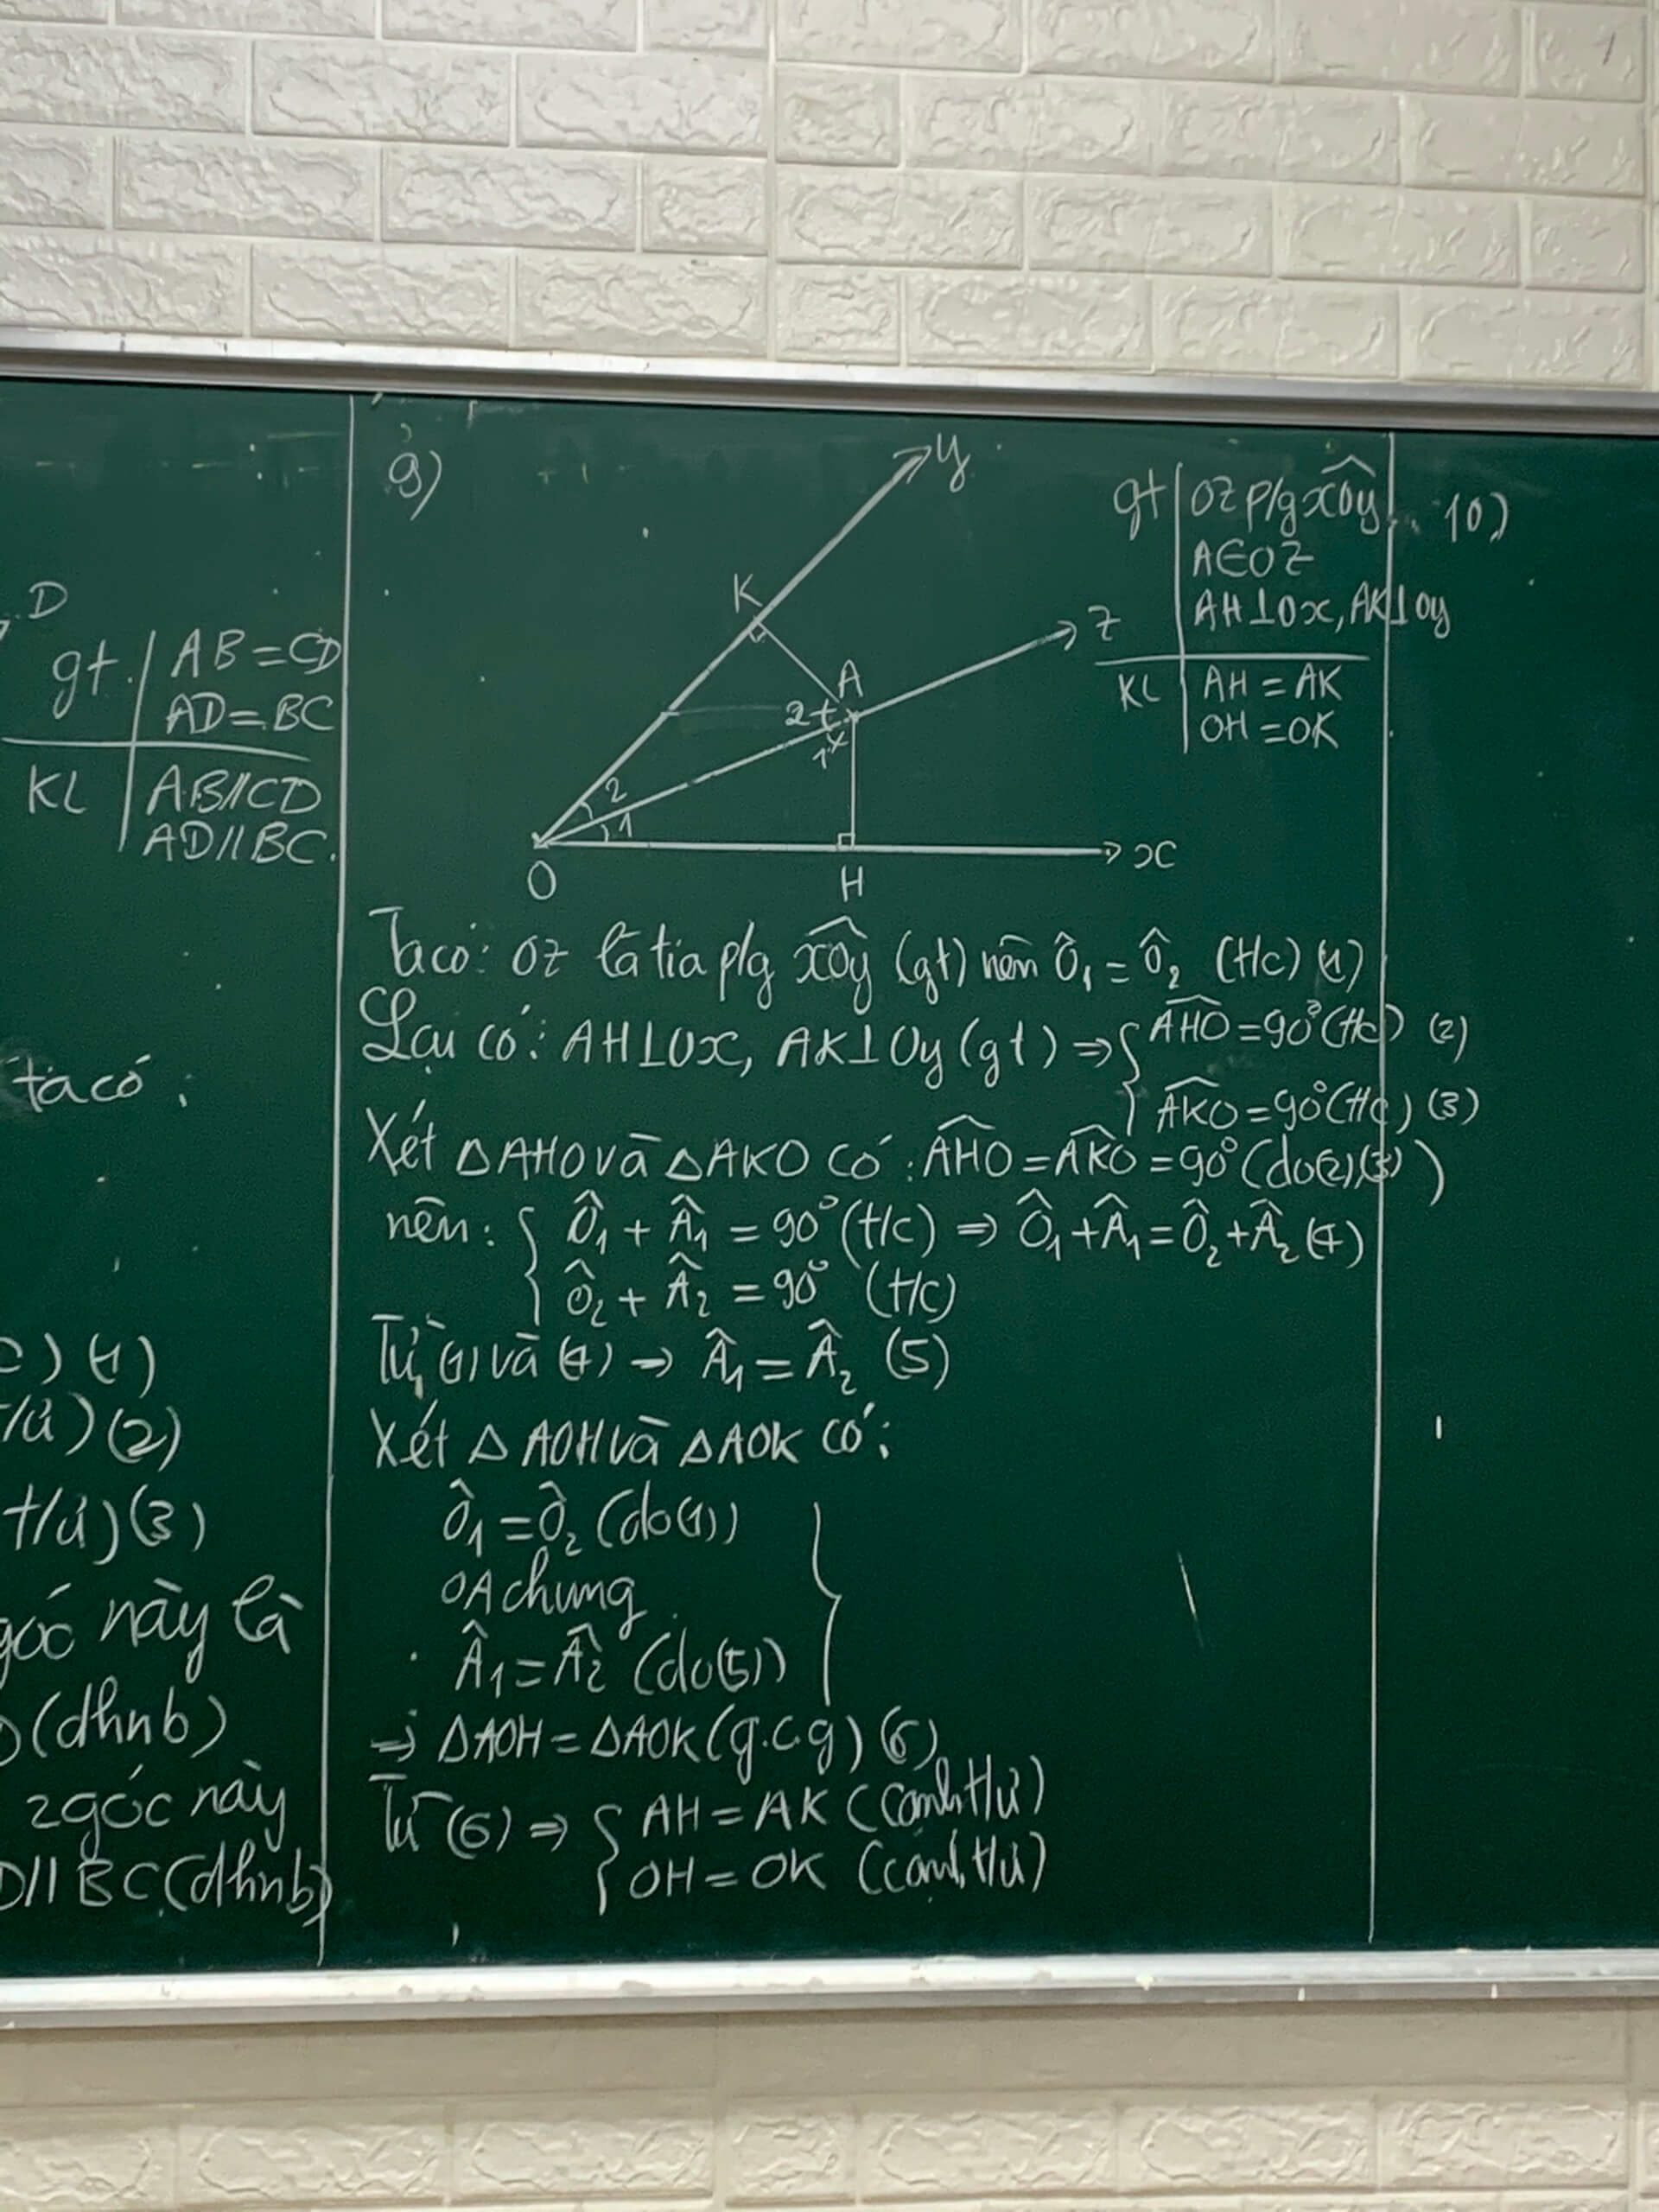 D
gt | AB = CD
AD = BC
KL | AB//CD
AD//BC.
ta có :
c) (1)
t/ứ) (2)
t/ứ) (3)
góc này là
(dhnb)
2 góc này
D// BC (dhnb)
9)
y
K
z
A
2
1
2
1
O
H
x
gt | OZ p/g xÔy
A∈OZ
AH⊥Ox, AK⊥Oy
KL | AH = AK
OH = OK
Ta có: Oz là tia p/g xÔy (gt) nên Ô₁ = Ô₂ (t/c) (1)
Lại có: AH⊥Ox, AK⊥Oy (gt) ⇒ { AĤO = 90° (t/c) (2)
AK̂O = 90° (t/c) (3)
Xét △AHO và △AKO có : AĤO = AK̂O = 90° (do (2),(3))
nên : { Ô₁ + Â₁ = 90° (t/c) ⇒ Ô₁ + Â₁ = Ô₂ + Â₂ (4)
Ô₂ + Â₂ = 90° (t/c)
Từ (1) và (4) ⇒ Â₁ = Â₂ (5)
Xét △ AOH và △AOK có :
Ô₁ = Ô₂ (do (1))
OA chung
Â₁ = Â₂ (do (5))
⇒ △AOH = △AOK (g.c.g) (6)
Từ (6) ⇒ { AH = AK (cạnh t/ứ)
OH = OK (cạnh t/ứ)
10)